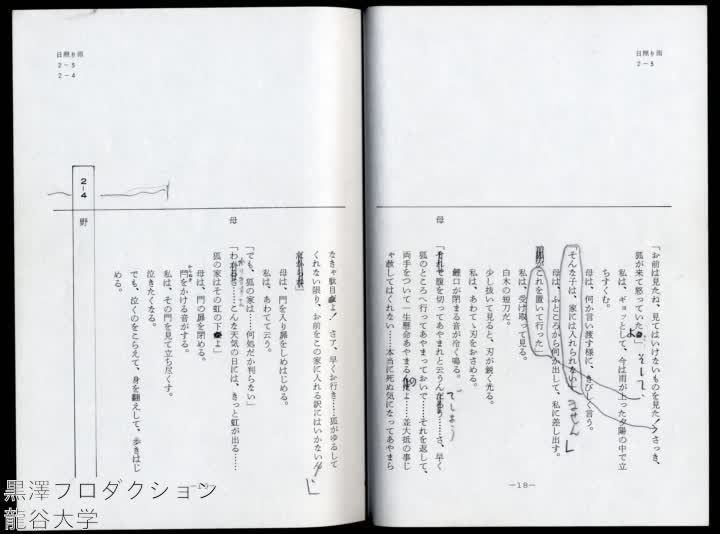 日照り雨
2-3
「お前は見たね、見てはいけないものを見た！さっき、
狐が来て怒っていたよ」
私は、ギョッとして、今は雨が上った夕陽の中で立
ちすくむ。
母は、何か言い渡す様に、きびしく言う。
「そんな子は、家には入れられない
ません」
そして、
母は、ふところから何か出して、私に差し出す。
これを置いて行った
私は、受け取って見る。
白木の短刀だ。
少し抜いて見ると、刃が鋭く光る。
私は、あわてゝ刃をおさめる。
鯉口が閉まる音が冷く鳴る。
母
腹を切ってあやまれと云う
でしょう
……さ、早く
狐のところへ行ってあやまっておいで……それを返して、
両手をついて一生懸命あやまる
のよ……並大抵の事じ
ゃ赦してはくれない……本当に死ぬ気になってあやまら
—18—
日照り雨
2-3
2-4
なきゃ駄目よ！さア、早くお行き……狐がゆるして
くれない限り、お前をこの家に入れる訳にはいかない
」
母は、門を入り扉をしめはじめる。
私は、あわてて云う。
「でも、狐の家は……何処だか判らない」
母
「わか
……こんな天気の日には、きっと虹が出る……
狐の家はその虹の下よ」
母は、門の扉を閉める。
閂をかける音がする。
私は、その門を見て立ち尽くす。
泣きたくなる。
でも、泣くのをこらえて、身を翻えして、歩きはじ
める。
2-4
野
黒澤プロダクション
龍谷大学